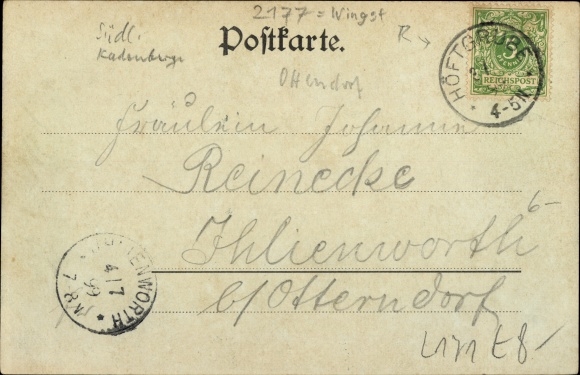 2177 = Wingst
Südl.
Kadenberge
Postkarte.
R →
5
PFENNIG
REICHSPOST
HÖFTGRUBE
4-5N.
Ottendorf
Fräulein Johanne
Reinecke
6-
Ihlienworth
b/Otterndorf
IHLIENWORTH
4/7
99
7-8N